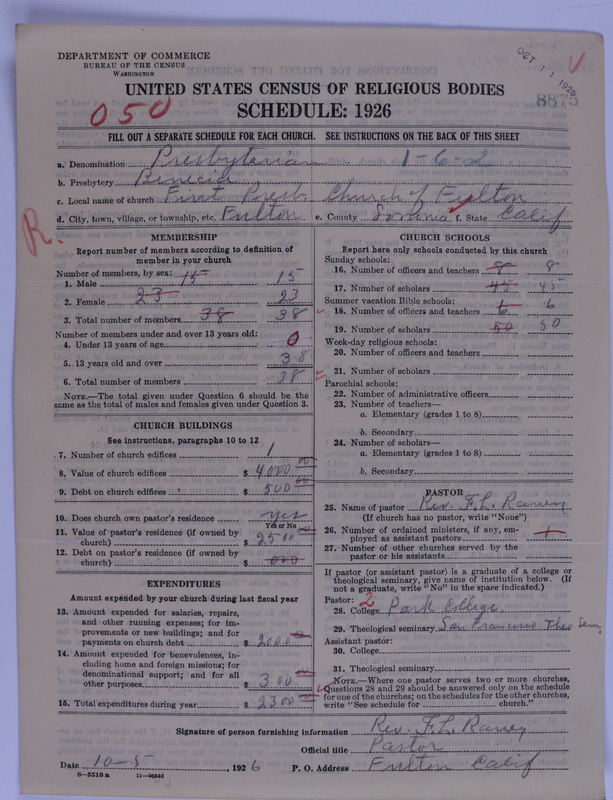 DEPARTMENT OF COMMERCE
BUREAU OF THE CENSUS
WASHINGTON
OCT 11 1926
8875
UNITED STATES CENSUS OF RELIGIOUS BODIES
SCHEDULE: 1926
050
FILL OUT A SEPARATE SCHEDULE FOR EACH CHURCH. SEE INSTRUCTIONS ON THE BACK OF THIS SHEET
a. Denomination Presbyterian 1-6-2
b. Presbytery Benecia
c. Local name of church First Presb Church of Fulton
d. City, town, village, or township, etc. Fulton e. County Sonoma f. State Calif
R.
MEMBERSHIP
Report number of members according to definition of
member in your church
Number of members, by sex:
1. Male 15 15
2. Female 23 23
3. Total number of members 38 38
Number of members under and over 13 years old:
4. Under 13 years of age 0
5. 13 years old and over 38
6. Total number of members 38
NOTE.—The total given under Question 6 should be the
same as the total of males and females given under Question 3.
CHURCH BUILDINGS
See instructions, paragraphs 10 to 12
7. Number of church edifices 1
8. Value of church edifices $ 4000 00
9. Debt on church edifices $ 500 00
10. Does church own pastor's residence yes
Yes or No
11. Value of pastor's residence (if owned by
church) $ 2500
12. Debt on pastor's residence (if owned by
church) $ 000
EXPENDITURES
Amount expended by your church during last fiscal year
13. Amount expended for salaries, repairs,
and other running expenses; for im-
provements or new buildings; and for
payments on church debt $ 2000
14. Amount expended for benevolences, in-
cluding home and foreign missions; for
denominational support; and for all
other purposes $ 300
15. Total expenditures during year $ 2300
CHURCH SCHOOLS
Report here only schools conducted by this church
Sunday schools:
16. Number of officers and teachers 8 8
17. Number of scholars 45 45
Summer vacation Bible schools:
18. Number of officers and teachers 6 6
19. Number of scholars 50 50
Week-day religious schools:
20. Number of officers and teachers
21. Number of scholars
Parochial schools:
22. Number of administrative officers
23. Number of teachers—
a. Elementary (grades 1 to 8)
b. Secondary
24. Number of scholars—
a. Elementary (grades 1 to 8)
b. Secondary
PASTOR
25. Name of pastor Rev. F. L. Raney
(If church has no pastor, write "None")
26. Number of ordained ministers, if any, em-
ployed as assistant pastors 1
27. Number of other churches served by the
pastor or his assistants
If pastor (or assistant pastor) is a graduate of a college or
theological seminary, give name of institution below. (If
not a graduate, write "No" in the space indicated.)
Pastor: 2
28. College Park College
29. Theological seminary San Francisco Theo Sem
Assistant pastor:
30. College
31. Theological seminary
NOTE.—Where one pastor serves two or more churches,
Questions 28 and 29 should be answered only on the schedule
for one of the churches; on the schedules for the other churches,
write "See schedule for church."
Signature of person furnishing information Rev. F. L. Raney
Official title Pastor
Date 10-5, 1926 P. O. Address Fulton Calif
8-5518 a 11-9054d